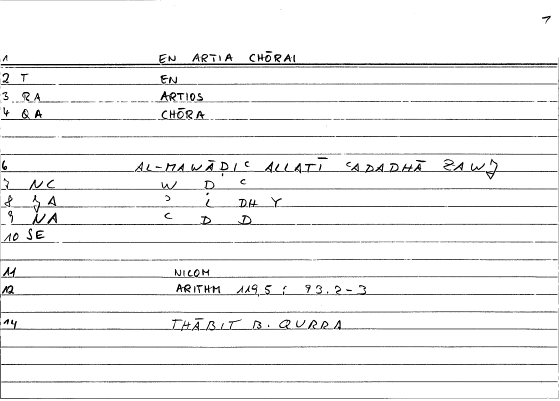 1
1 EN ARTIA CHŌRAI
2 T EN
3 RA ARTIOS
4 QA CHŌRA
6 AL-MAWĀḌIʿ ALLATĪ ʿADADHĀ ZAWJ
7 NC W Ḍ ʿ
8 JA ʾ L DH Y
9 NA ʿ D D
10 SE
11 NICOM
12 ARITHM 119,5 : 93.2-3
14 THĀBIT B. QURRA